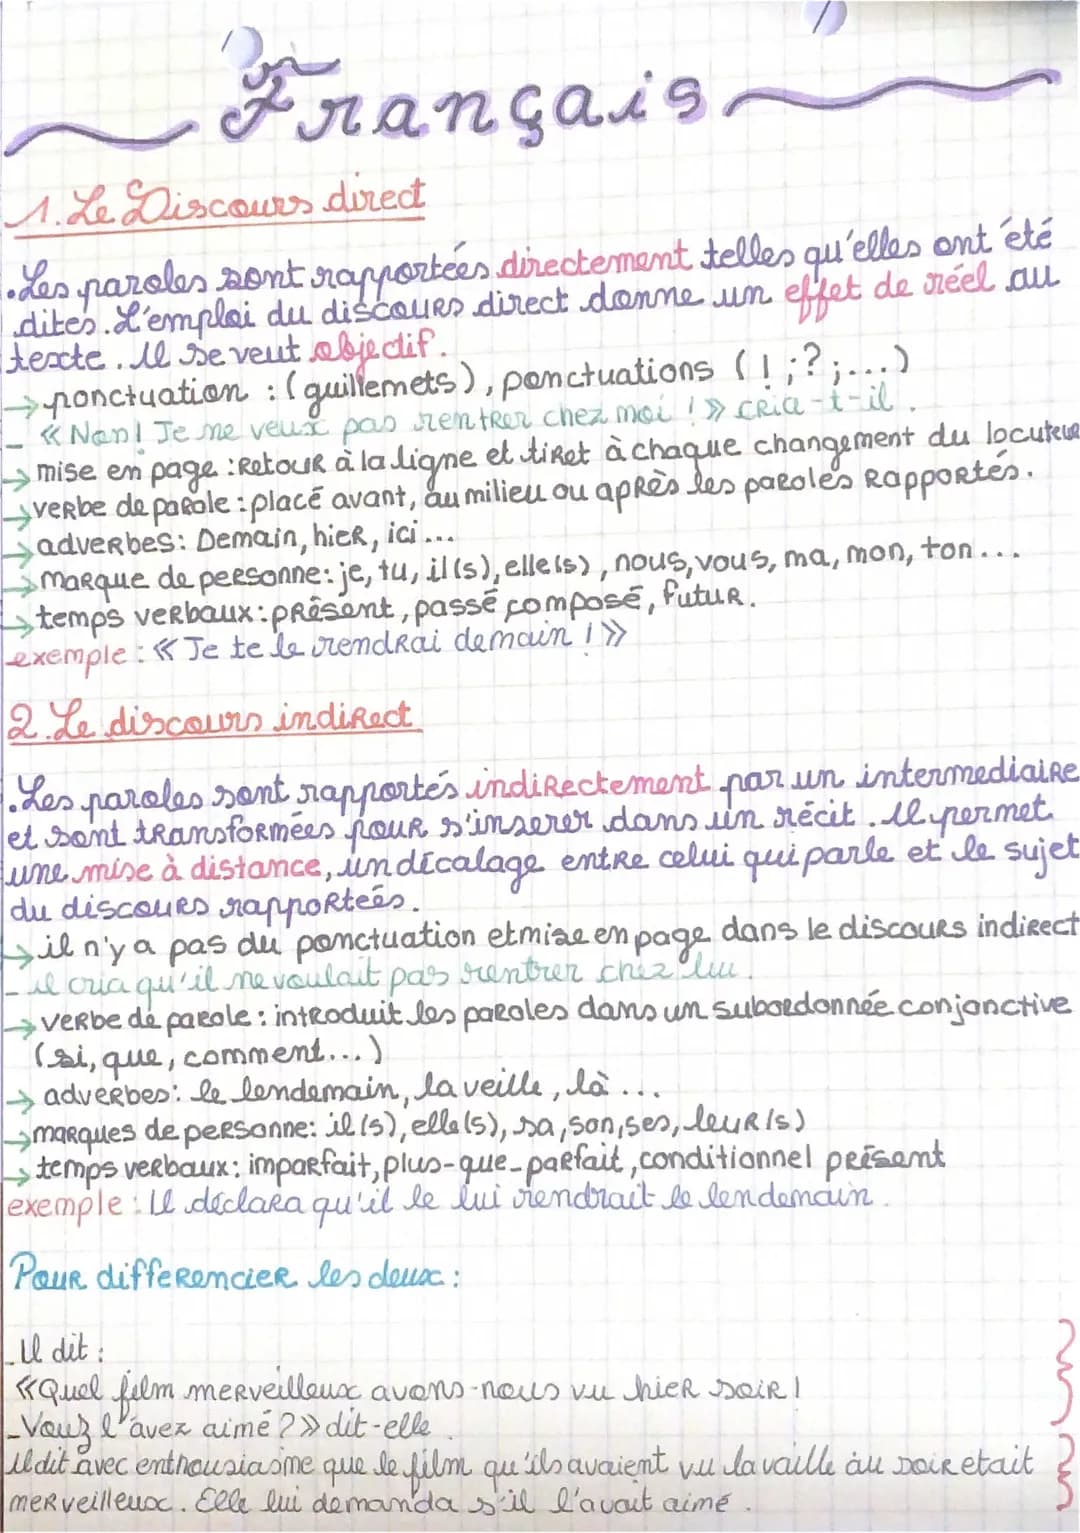 Français
1. Le Discours direct
.Les paroles sont rapportées directement telles qu'elles ont été
dites. L'emploi du discours direct donne un effet de réel au
texte. Il se veut objectif.
→ ponctuation : (guillemets), ponctuations (!;?;...)
- « Non! Je ne veux pas rentrer chez moi !» cria-t-il.
→ mise en page : Retour à la ligne et tiret à chaque changement du locuteur
→ verbe de parole : placé avant, au milieu ou après les paroles Rapportés.
→ adverbes: Demain, hier, ici...
→ marque de personne: je, tu, il(s), elle(s), nous, vous, ma, mon, ton...
→ temps verbaux: présent, passé composé, futur.
exemple : « Je te le rendrai demain !»
2. Le discours indirect
.Les paroles sont rapportés indirectement par un intermediaire
et sont transformées pour s'inserer dans un récit. Il permet
une mise à distance, un décalage entre celui qui parle et le sujet
du discours rapportées.
→ il n'y a pas du ponctuation et mise en page dans le discours indirect
- il cria qu'il ne voulait pas rentrer chez lui.
→ verbe de parole : introduit les paroles dans un subordonnée conjonctive
(si, que, comment...)
→ adverbes: le lendemain, la veille, là...
→ marques de personne: il(s), elle(s), sa, son, ses, leur(s)
→ temps verbaux: imparfait, plus-que-parfait, conditionnel présent
exemple : Il déclara qu'il le lui rendrait le lendemain.
Pour differencier les deux :
- Il dit :
«Quel film merveilleux avons-nous vu hier soir!
- Vous l'avez aimé ?» dit-elle.
Il dit avec enthousiasme que le film qu'ils avaient vu la vaille au soir etait
merveilleux. Elle lui demanda s'il l'avait aimé.